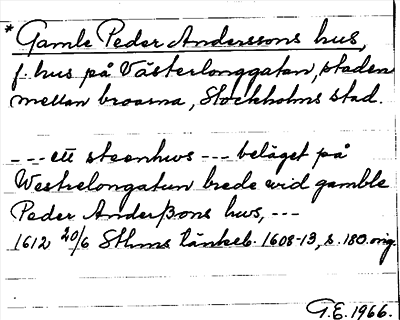 * Gamle Peder Anderssons hus,
f. hus på Västerlonggatan, staden
mellan broarna, Stockholms stad.
--- ett steenhws --- beläget på
Westrelongatun brede wid gamble
Peder Anderßons hws, ---
1612 20/6 Sthms tänkeb. 1608-13, s. 180. orig.
G.E. 1966.